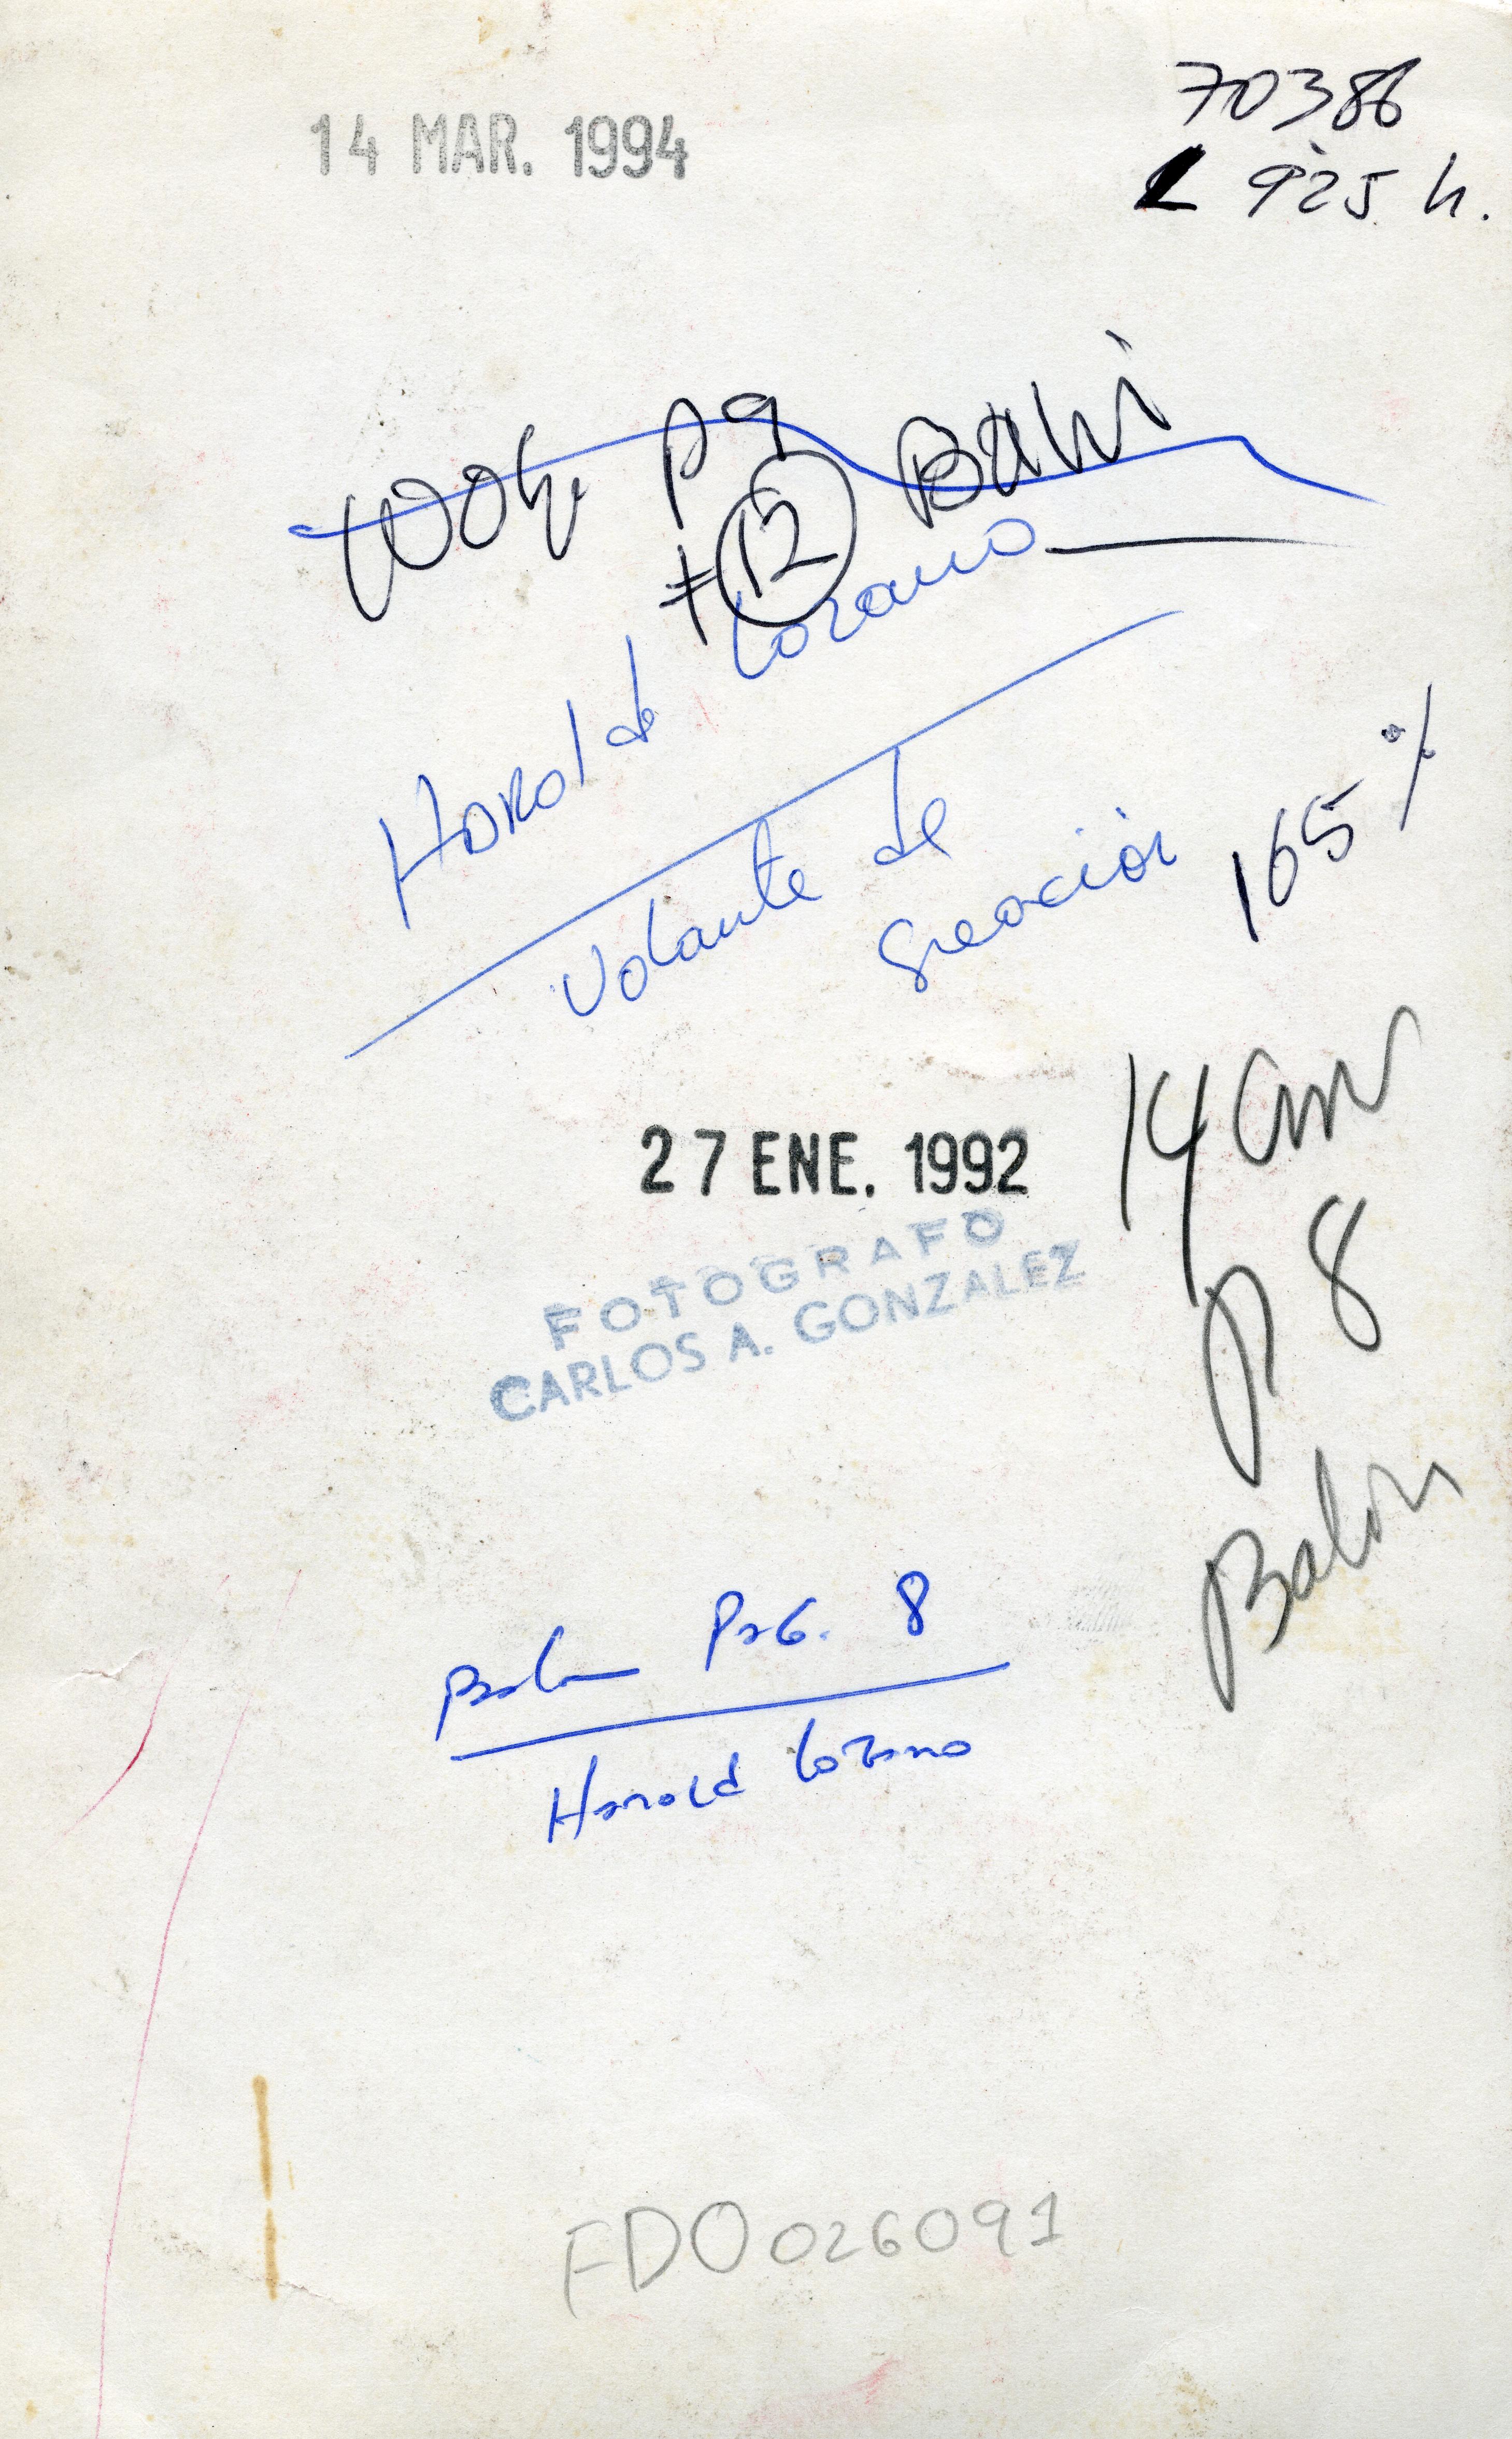 70386
14 MAR. 1994
925 h.
100% P9
#12
Harold Lozano
Volante de
Creación
165 %
14 cm
27 ENE. 1992
P 8
FOTOGRAFO
CARLOS A. GONZALEZ
Balon
Pag. 8
Harold Lozano
FDO026091